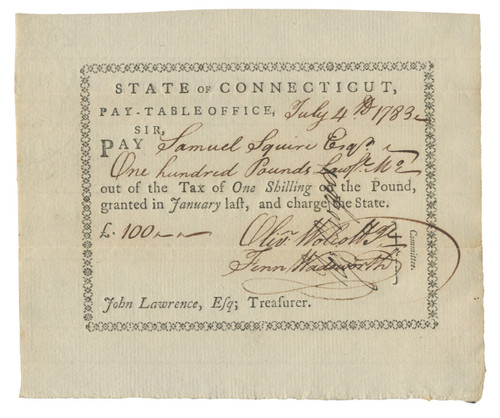 STATE OF CONNECTICUT,
PAY-TABLE OFFICE, July 4th 1783
SIR,
PAY Samuel Squire Esqr.
One hundred Pounds
out of the Tax of One Shilling on the Pound,
granted in January last, and charge the State.
£. 100
Olivr Wolcott Jr
Fenn Wadsworth
Committee.
John Lawrence, Esq; Treasurer.